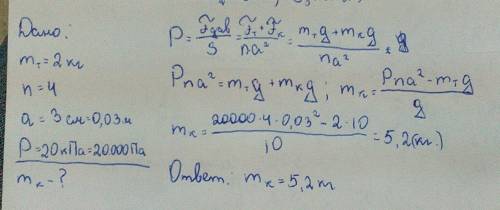 Дано:
m_т = 2 кг
n = 4
a = 3 см = 0,03 м
P = 20 кПа = 20000 Па
m_к - ?
P = F_дав / S = (F_т + F_к) / na² = (m_т g + m_к g) / na²
Pna² = m_т g + m_к g ; m_к = (Pna² - m_т g) / g
m_к = (20000 · 4 · 0,03² - 2 · 10) / 10 = 5,2 (кг.)
Ответ: m_к = 5,2 кг